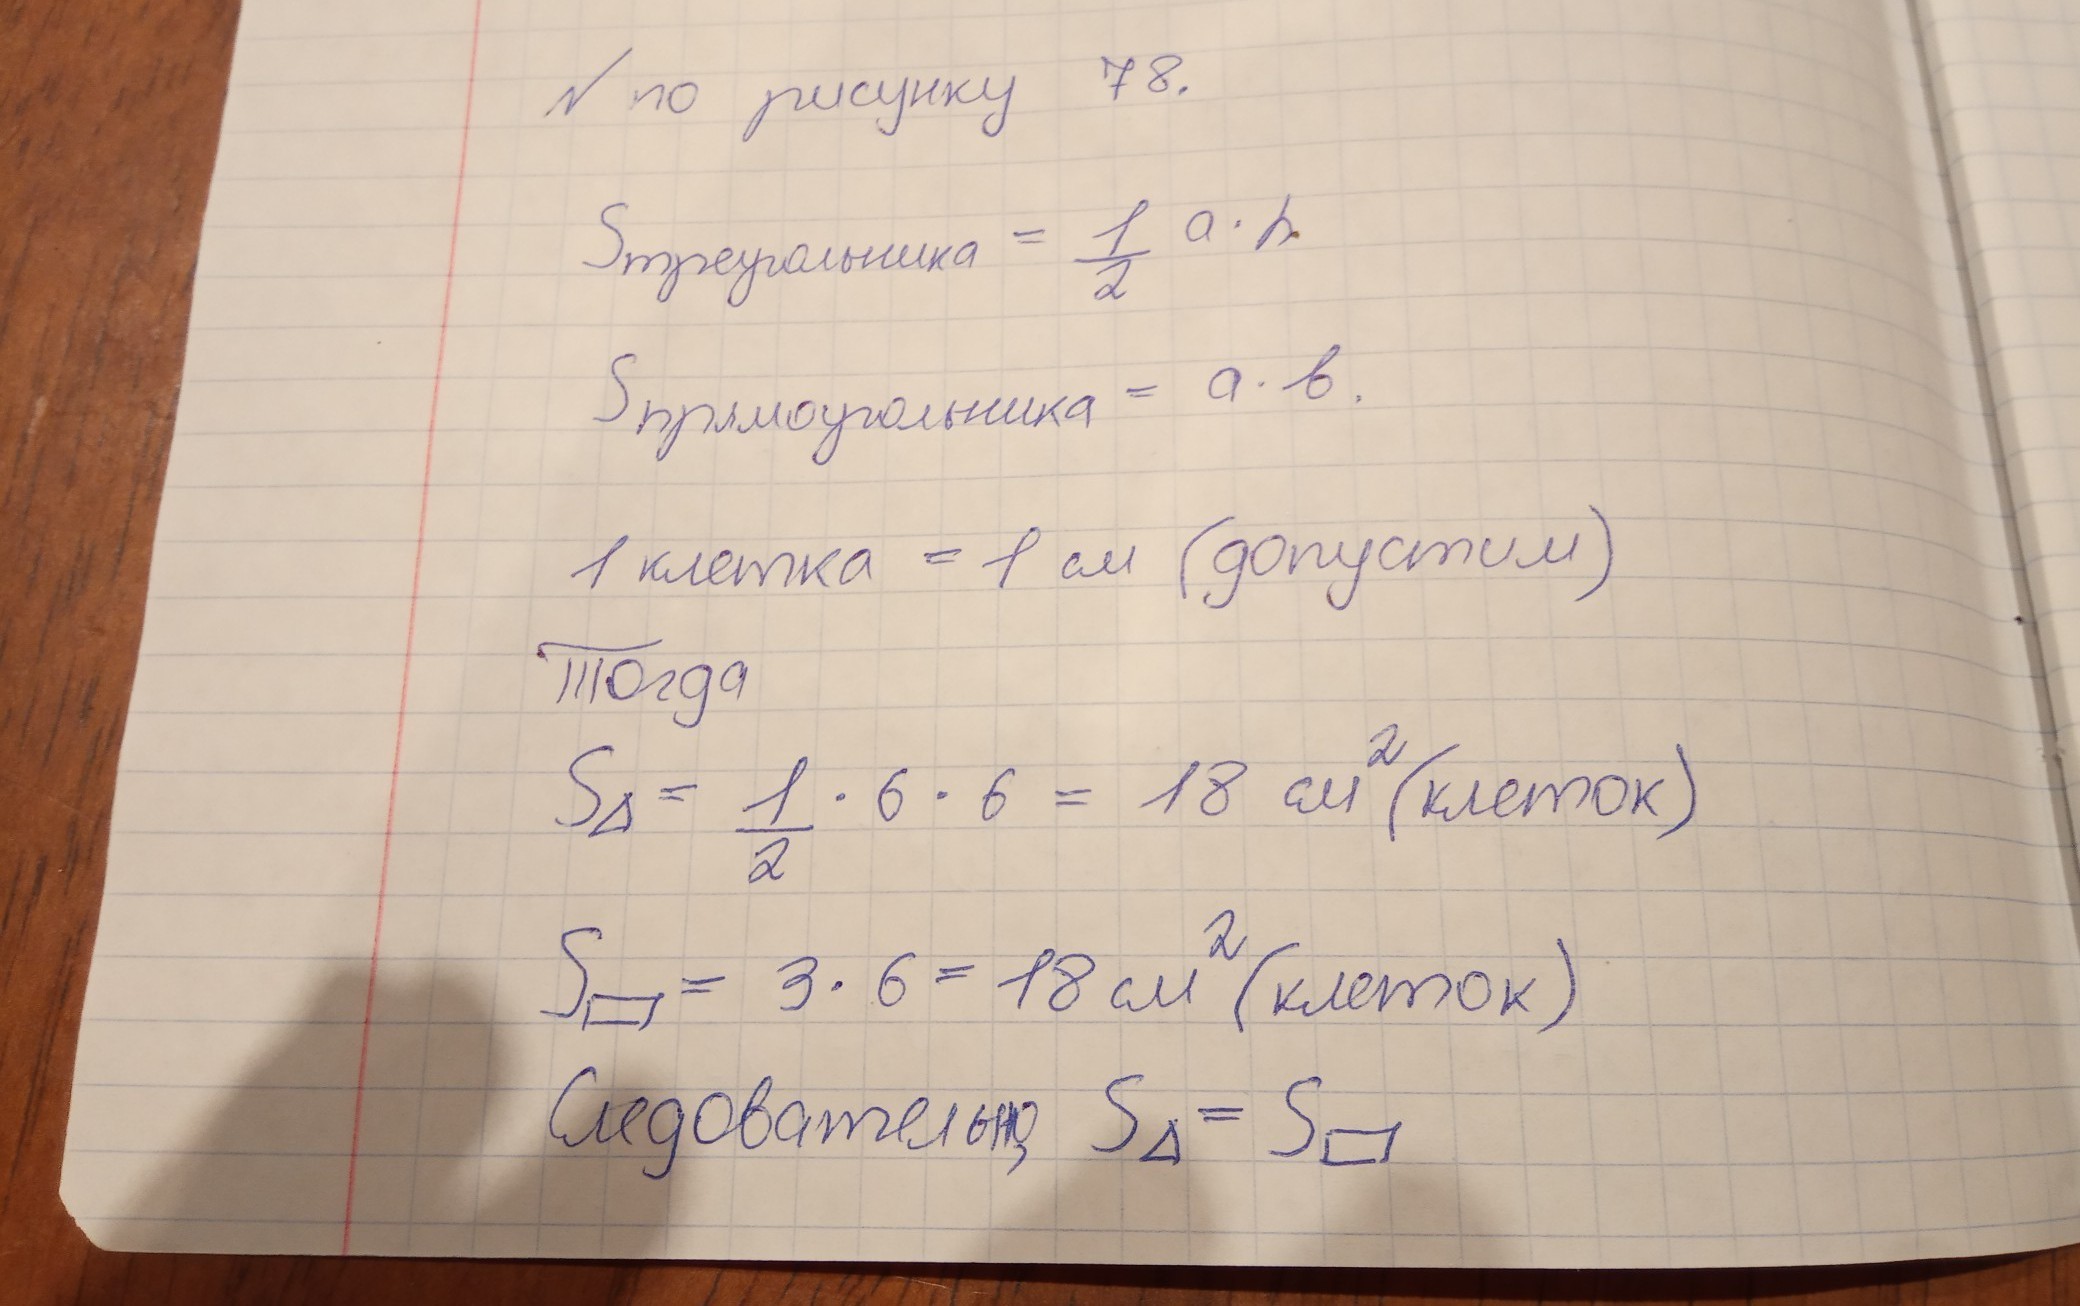 № по рисунку 78.
Sтреугольника = 1/2 a · h
Sпрямоугольника = a · b.
1 клетка = 1 см (допустим)
Тогда
S△ = 1/2 · 6 · 6 = 18 см² (клеток)
S▭ = 3 · 6 = 18 см² (клеток)
Следовательно, S△ = S▭